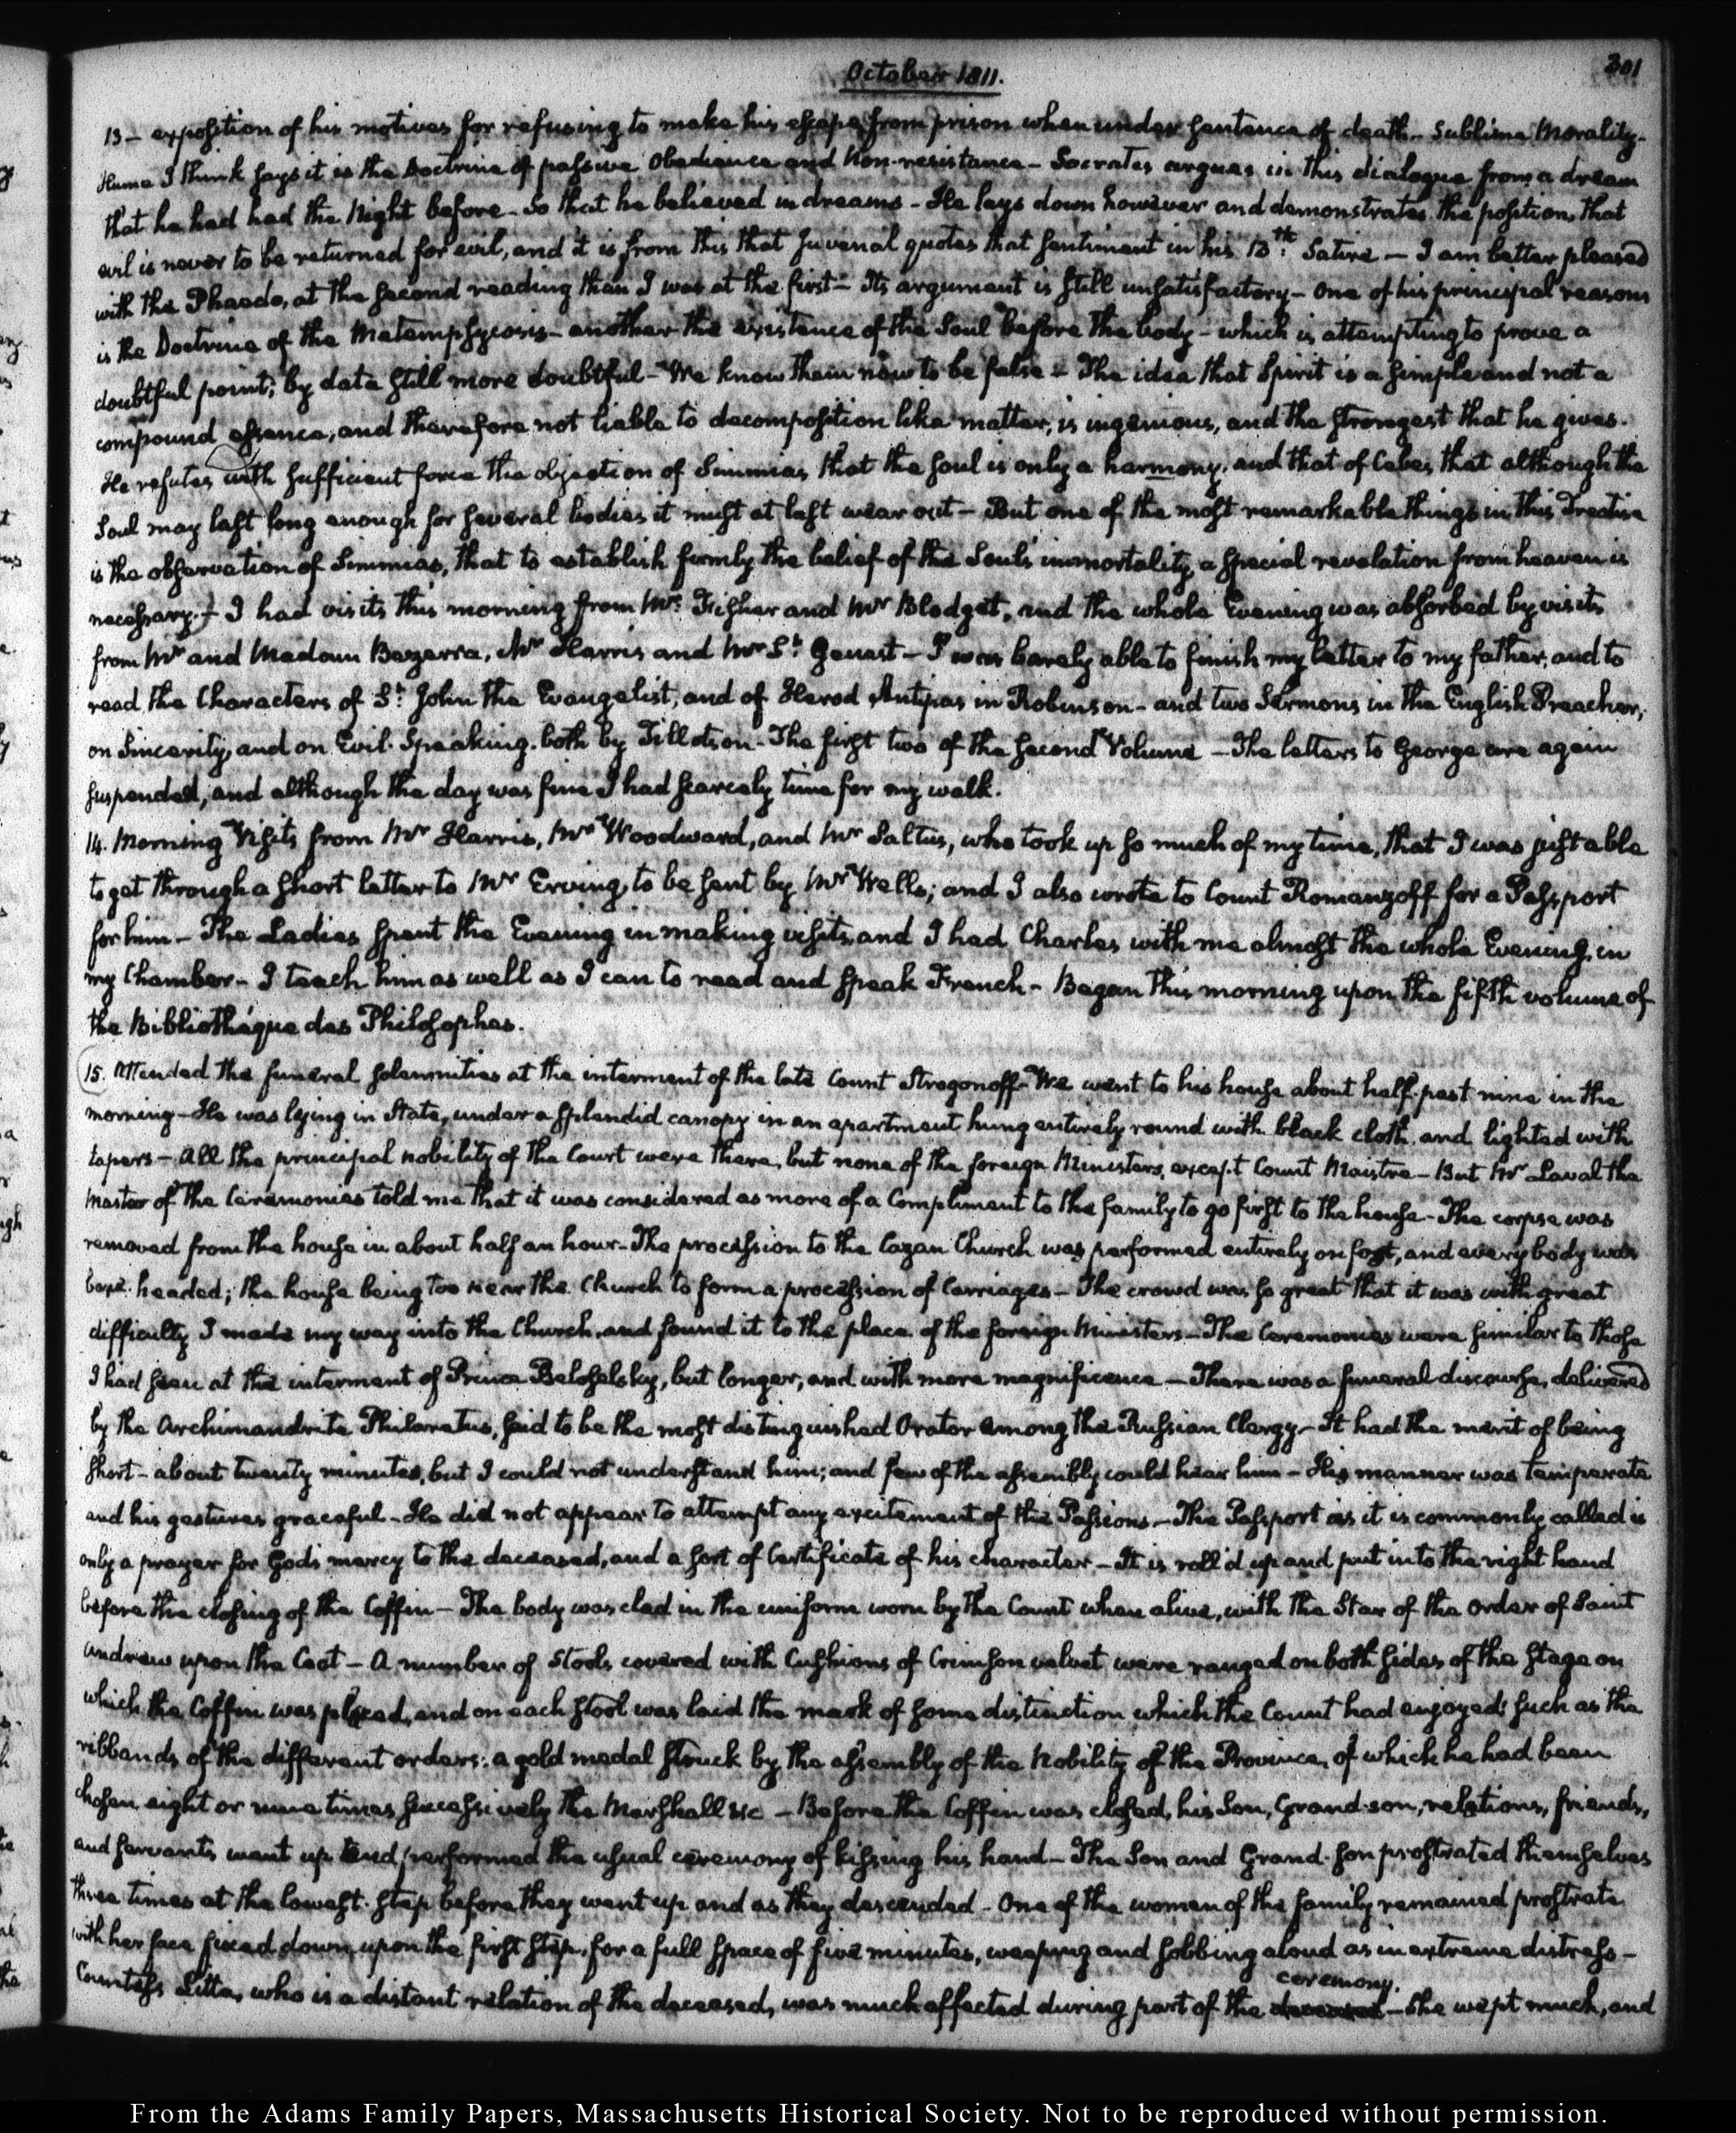 October 1811.
301
13 - exposition of his motives for refusing to make his escape from prison when under sentence of death - Sublime Morality -
Hume I think says it is the Doctrine of passive Obedience and Non-resistance - Socrates argues in this dialogue from a dream
that he had had the Night before - So that he believed in dreams - He lays down however and demonstrates the position, that
evil is never to be returned for evil, and it is from this that Juvenal quotes that sentiment in his 13th: Satire - I am better pleased
with the Phaedo, at the second reading than I was at the first - Its argument is still unsatisfactory - One of his principal reasons
is the Doctrine of the Metempsycosis - another the existence of the Soul before the body - which is attempting to prove a
doubtful point, by data still more doubtful - We know them now to be false - The idea that Spirit is a simple and not a
compound essence, and therefore not liable to decomposition like matter, is ingenious, and the strongest that he gives.
He refutes with sufficient force the objection of Simmias, that the soul is only a harmony, and that of Cebes, that although the
Soul may last long enough for several bodies it must at last wear out - But one of the most remarkable things in this Treatise
is the observation of Simmias, that to establish firmly the belief of the Soul's immortality, a special revelation from heaven is
necessary. - I had visits this morning from Mr. Fisher and Mr Blodget, and the whole Evening was absorbed by visits
from Mr and Madam Bezerra, Mr Harris and Mr St: Genest - I was barely able to finish my letter to my father, and to
read the Characters of St: John the Evangelist, and of Herod Antipas in Robinson - and two Sermons in the English Preacher,
on Sincerity, and on Evil-Speaking, both by Tillotson - The first two of the second Volume - The letters to George are again
suspended, and although the day was fine I had scarcely time for my walk.
14. Morning Visits from Mr Harris, Mr Woodward, and Mr Saltus, who took up so much of my time, that I was just able
to get through a short letter to Mr Erving, to be sent by Mr Wells; and I also wrote to Count Romanzoff for a Passport
for him - The Ladies spent the Evening in making visits, and I had Charles with me almost the whole Evening, in
my Chamber - I teach him as well as I can to read and speak French - Began this morning upon the fifth volume of
the Bibliothéque des Philosophes.
15. Attended the funeral solemnities at the interment of the late Count Strogonoff - We went to his house about half-past nine in the
morning - He was lying in State, under a splendid canopy in an apartment hung entirely round with black cloth, and lighted with
tapers - All the principal nobility of the Court were there, but none of the foreign Ministers, except Count Maistre - But Mr Laval the
Master of the Ceremonies told me that it was considered as more of a Compliment to the family to go first to the house - The corpse was
removed from the house in about half an hour - The procession to the Cazan Church was performed entirely on foot, and every body was
bare-headed; the house being too near the Church to form a procession of Carriages - The crowd was so great that it was with great
difficulty I made my way into the Church, and found it to the place of the foreign Ministers - The Ceremonies were similar to those
I had seen at the interment of Prince Beloselsky, but longer, and with more magnificence - There was a funeral discourse, delivered
by the Archimandrite Philaretus, said to be the most distinguished Orator among the Russian Clergy - It had the merit of being
short - about twenty minutes, but I could not understand him; and few of the assembly could hear him - His manner was temperate
and his gestures graceful - He did not appear to attempt any excitement of the Passions - The Passport as it is commonly called is
only a prayer for God's mercy to the deceased, and a sort of Certificate of his character - It is roll'd up and put into the right hand
before the closing of the Coffin - The body was clad in the uniform worn by the Count when alive, with the Star of the order of Saint
Andrew upon the Coat - A number of Stools covered with Cushions of Crimson velvet were ranged on both sides of the stage on
which the Coffin was placed, and on each stool was laid the mark of some distinction which the Count had enjoyed: such as the
ribbands of the different orders: a gold medal struck by the assembly of the Nobility of the Province, of which he had been
chosen eight or nine times successively the Marshall &c - Before the Coffin was closed, his Son, Grand-son, relations, friends,
and servants, went up and performed the usual ceremony of kissing his hand - The Son and Grand-son prostrated themselves
three times at the lowest step before they went up and as they descended - One of the women of the family remained prostrate
with her face fixed down upon the first step, for a full space of five minutes, weeping and sobbing aloud as in extreme distress -
ceremony.
Countess Litta, who is a distant relation of the deceased, was much affected during part of the deceased - She wept much, and
From the Adams Family Papers, Massachusetts Historical Society. Not to be reproduced without permission.